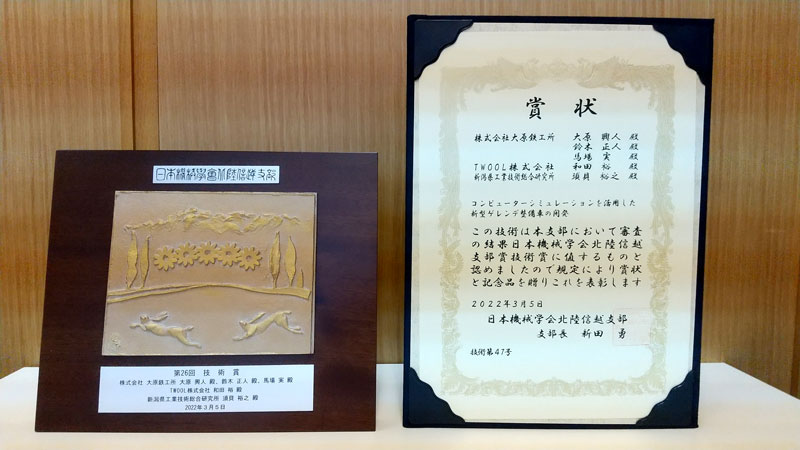 日本機械學會北陸信越支部
第26回 技術賞
株式会社 大原鉄工所 大原 興人 殿、鈴木 正人 殿、馬場 実 殿
TWOOL株式会社 和田 裕 殿
新潟県工業技術総合研究所 須貝 裕之 殿
2022年3月5日
賞状
株式会社大原鉄工所 大原 興人 殿
鈴木 正人 殿
馬場 実 殿
TWOOL株式会社 和田 裕 殿
新潟県工業技術総合研究所 須貝 裕之 殿
コンピューターシミュレーションを活用した
新型ゲレンデ整備車の開発
この技術は本支部において審査
の結果日本機械学会北陸信越
支部賞技術賞に値するものと
認めましたので規定により賞状
と記念品を贈りこれを表彰します
2022年3月5日
日本機械学会北陸信越支部
支部長 新田 勇
技術第47号